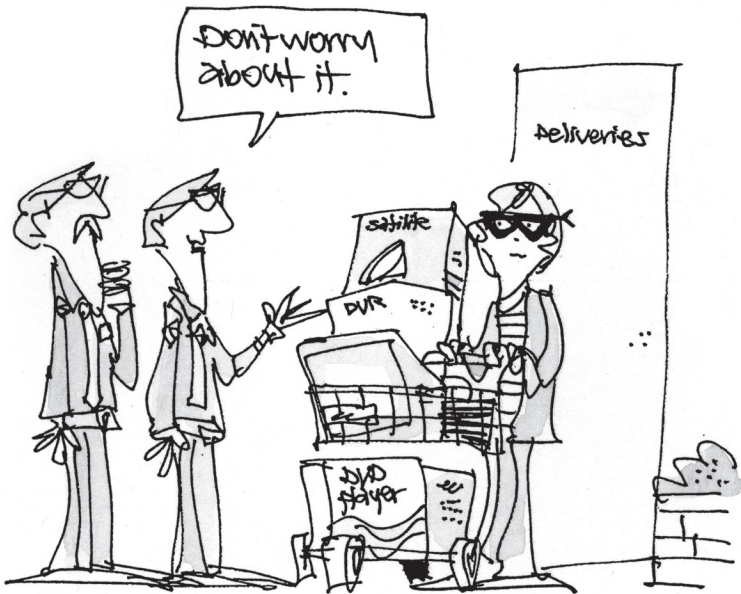 Don't worry
about it.
Deliveries
satilite
DVR
DVD
player